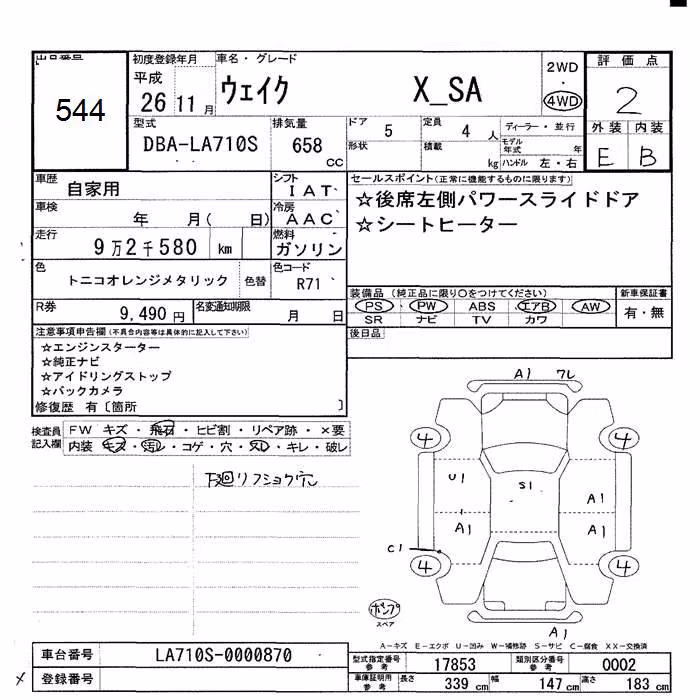 出品番号
544
初度登録年月
平成
26 11 月
車名・グレード
ウェイク X_SA
2WD
・
4WD
評価点
2
外装 内装
E B
型式
DBA-LA710S
排気量
658 CC
ドア 5
形状
定員 4 人
積載 kg
ディーラー・並行
モデル年式 年
ハンドル 左・右
車歴 自家用
シフト
I A T
車検 年 月( 日)
冷房
A A C
走行 9万2千580 km
燃料
ガソリン
色
トニコオレンジメタリック 色替
色コード
R71
R券 9,490 円
名変通知期限 月 日
セールスポイント(正常に機能するものに限ります)
☆後席左側パワースライドドア
☆シートヒーター
装備品 (純正品に限り○をつけてください)
PS PW ABS エアB AW
SR ナビ TV カワ
新車保証書
有・無
後日品
注意事項申告欄(不具合内容等は具体的に記入して下さい)
☆エンジンスターター
☆純正ナビ
☆アイドリングストップ
☆バックカメラ
修復歴 有〔箇所 〕
検査員記入欄
FW キズ・飛石・ヒビ割・リペア跡・×要
内装 キズ・汚れ・コゲ・穴・スレ・キレ・破レ
下廻リフショク穴
A1 ワレ
4 4
U1 S1
A1
A1 A1
C1
4 4
ポンプ
スペア
A1
A-キズ E-エクボ U-凹み W-補修跡 S-サビ C-腐食 XX-交換済
車台番号 LA710S-0000870
登録番号
型式指定番号 参考 17853
類別区分番号 参考 0002
車庫証明用 参考 長さ 339 cm 幅 147 cm 高さ 183 cm